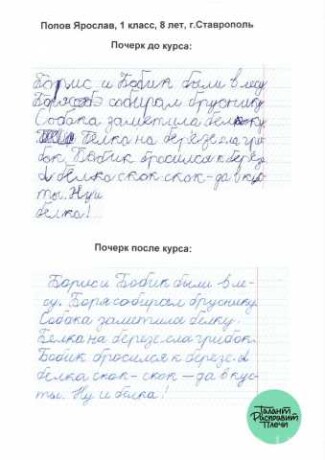 Попов Ярослав, 1 класс, 8 лет, г.Ставрополь
Почерк до курса:
Борис и Бобик были в лесу
Боря собирал бруснику
Собака заметила белку
Белка на березе ела гри
бок. Бобик бросился к берез
А белка скок скок - да в кус
ты. Ну и
белка!
Почерк после курса:
Борис и Бобик были в ле-
су. Боря собирал бруснику.
Собака заметила белку.
Белка на березе ела грибок.
Бобик бросился к березе. А
белка скок - скок — да в кус-
ты. Ну и белка!
Талант
Расправит
Плечи